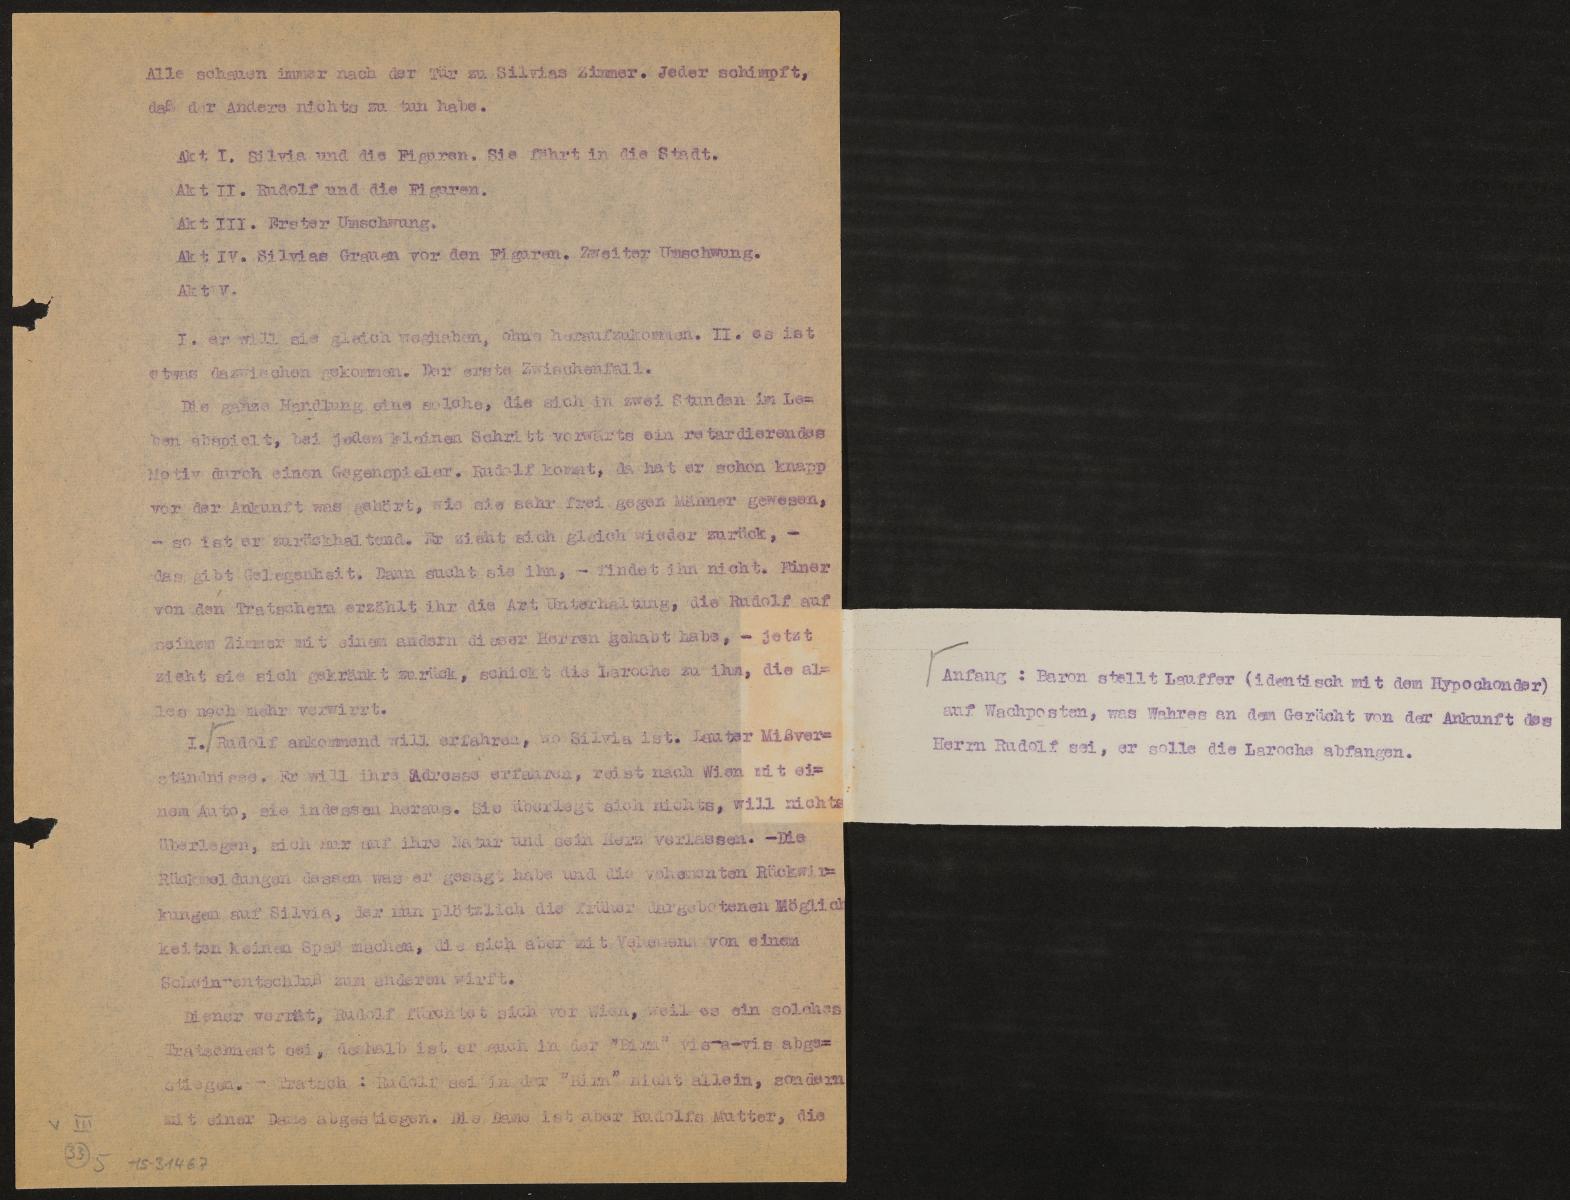 Alle schauen immer nach der Tür zu Silvias Zimmer. Jeder schimpft,
daß der Andere nichts zu tun habe.
Akt I. Silvia und die Figuren. Sie fährt in die Stadt.
Akt II. Rudolf und die Figuren.
Akt III. Erster Umschwung.
Akt IV. Silvias Grauen vor den Figuren. Zweiter Umschwung.
Akt V.
I. er will sie gleich weghaben, ohne heraufzukommen. II. es ist
etwas dazwischen gekommen. Der erste Zwischenfall.
Die ganze Handlung eine solche, die sich in zwei Stunden im Le=
ben abspielt, bei jedem kleinen Schritt vorwärts ein retardierendes
Motiv durch einen Gegenspieler. Rudolf kommt, da hat er schon knapp
vor der Ankunft was gehört, wie sie sehr frei gegen Männer gewesen,
- so ist er zurückhaltend. Er zieht sich gleich wieder zurück, -
das gibt Gelegenheit. Dann sucht sie ihn, - findet ihn nicht. Einer
von den Tratschern erzählt ihr die Art Unterhaltung, die Rudolf auf
seinem Zimmer mit einem andern dieser Herren gehabt habe, - jetzt
zieht sie sich gekränkt zurück, schickt die Laroche zu ihm, die al=
les noch mehr verwirrt.
I. Rudolf ankommend will erfahren, wo Silvia ist. Lauter Mißver=
ständnisse. Er will ihre Adresse erfahren, reist nach Wien mit ei=
nem Auto, sie indessen heraus. Sie überlegt sich nichts, will nichts
überlegen, sich nur auf ihre Natur und sein Herz verlassen. -Die
Rückmeldungen dessen was er gesagt habe und die vehementen Rückwir=
kungen auf Silvia, der nun plötzlich die früher dargebotenen Möglich
keiten keinen Spaß machen, die sich aber mit Vehemenz von einem
Schein-entschluß zum anderen wirft.
Diener verrät, Rudolf fürchtet sich vor Wien, weil es ein solches
Tratschnest sei, deshalb ist er auch in der "Birn" vis-a-vis abge=
stiegen. - Tratsch : Rudolf sei in der "Birn" nicht allein, sondern
mit einer Dame abgestiegen. Die Dame ist aber Rudolfs Mutter, die
V III
33 5 15-31467
Anfang : Baron stellt Lauffer (identisch mit dem Hypochonder)
auf Wachposten, was Wahres an dem Gerücht von der Ankunft des
Herrn Rudolf sei, er solle die Laroche abfangen.